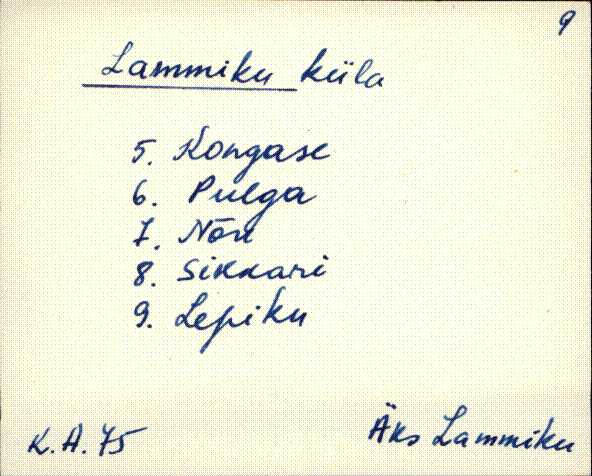 9
Lammiku küla
5. Kongase
6. Pulga
7. Nõu
8. Sikkari
9. Lepiku
K.A.75
Äks Lammiku